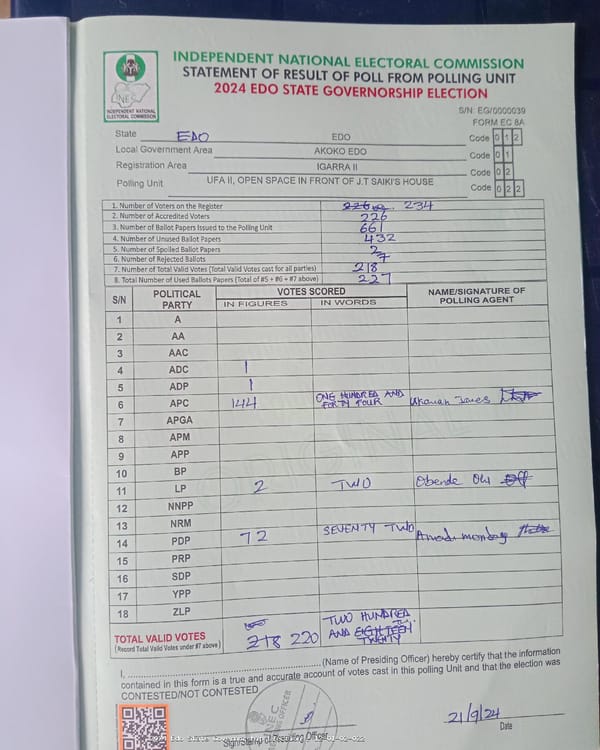 INDEPENDENT NATIONAL ELECTORAL COMMISSION
STATEMENT OF RESULT OF POLL FROM POLLING UNIT
2024 EDO STATE GOVERNORSHIP ELECTION
INEC
INDEPENDENT NATIONAL
ELECTORAL COMMISSION
S/N: EG/0000039
FORM EC 8A
State EDO EDO Code 0 1 2
Local Government Area AKOKO EDO Code 0 1
Registration Area IGARRA II Code 0 2
Polling Unit UFA II, OPEN SPACE IN FRONT OF J.T SAIKI'S HOUSE Code 0 2 2
1. Number of Voters on the Register 226 234
2. Number of Accredited Voters 226
3. Number of Ballot Papers Issued to the Polling Unit 661
4. Number of Unused Ballot Papers 432
5. Number of Spoiled Ballot Papers 2
6. Number of Rejected Ballots 7
7. Number of Total Valid Votes (Total Valid Votes cast for all parties) 218
8. Total Number of Used Ballots Papers (Total of #5 + #6 + #7 above) 227
S/N POLITICAL PARTY VOTES SCORED NAME/SIGNATURE OF POLLING AGENT
IN FIGURES IN WORDS
1 A
2 AA
3 AAC
4 ADC 1
5 ADP 1
6 APC 144 ONE HUNDRED AND FORTY FOUR James
7 APGA
8 APM
9 APP
10 BP
11 LP 2 TWO Obende
12 NNPP
13 NRM
14 PDP 72 SEVENTY TWO monday
15 PRP
16 SDP
17 YPP
18 ZLP
TOTAL VALID VOTES 218 220 TWO HUNDRED AND EIGHTEEN TWENTY
(Record Total Valid Votes under #7 above)
I, (Name of Presiding Officer) hereby certify that the information
contained in this form is a true and accurate account of votes cast in this polling Unit and that the election was
CONTESTED/NOT CONTESTED
Sign/Stamp of Presiding Officer
21/9/24
Date